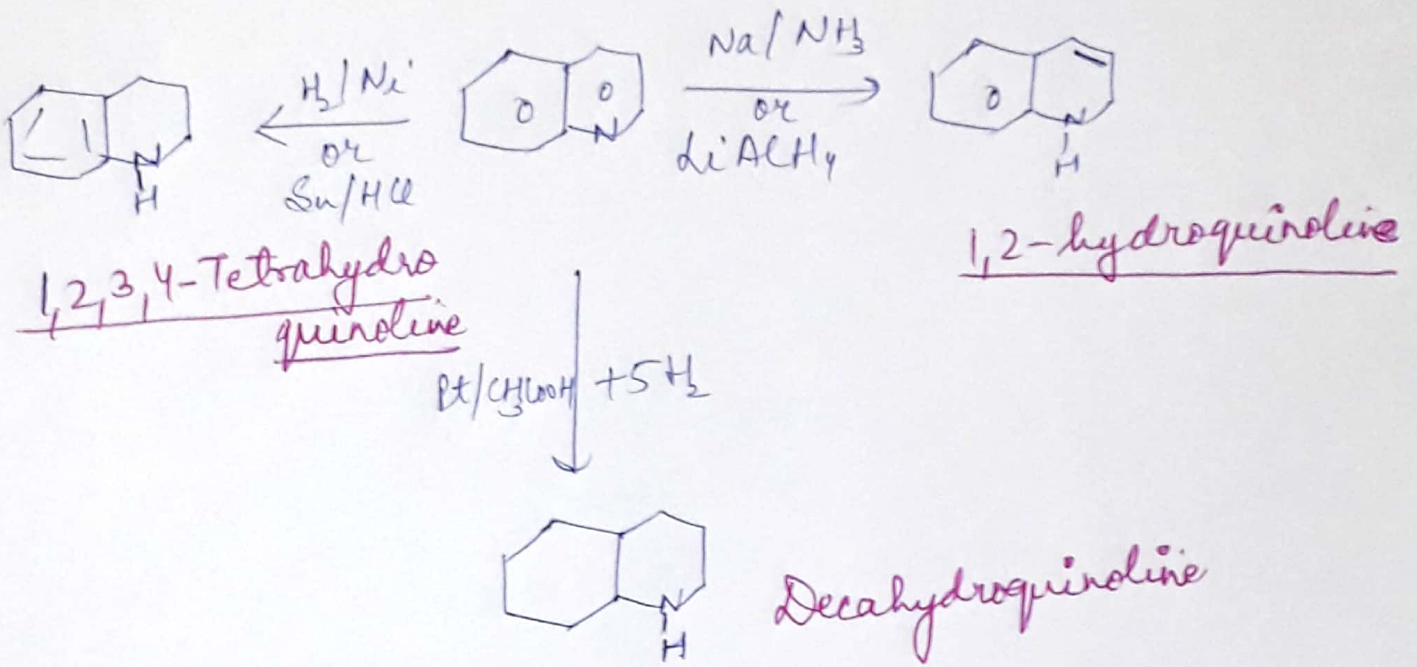 H₂/Ni
or
Sn/HCl
O O
N
Na/NH₃
or
LiAlH₄
O
N
H
N
H
1,2,3,4-Tetrahydro
quinoline
1,2-hydroquinoline
Pt/CH₃COOH +5H₂
N
H
Decahydroquinoline